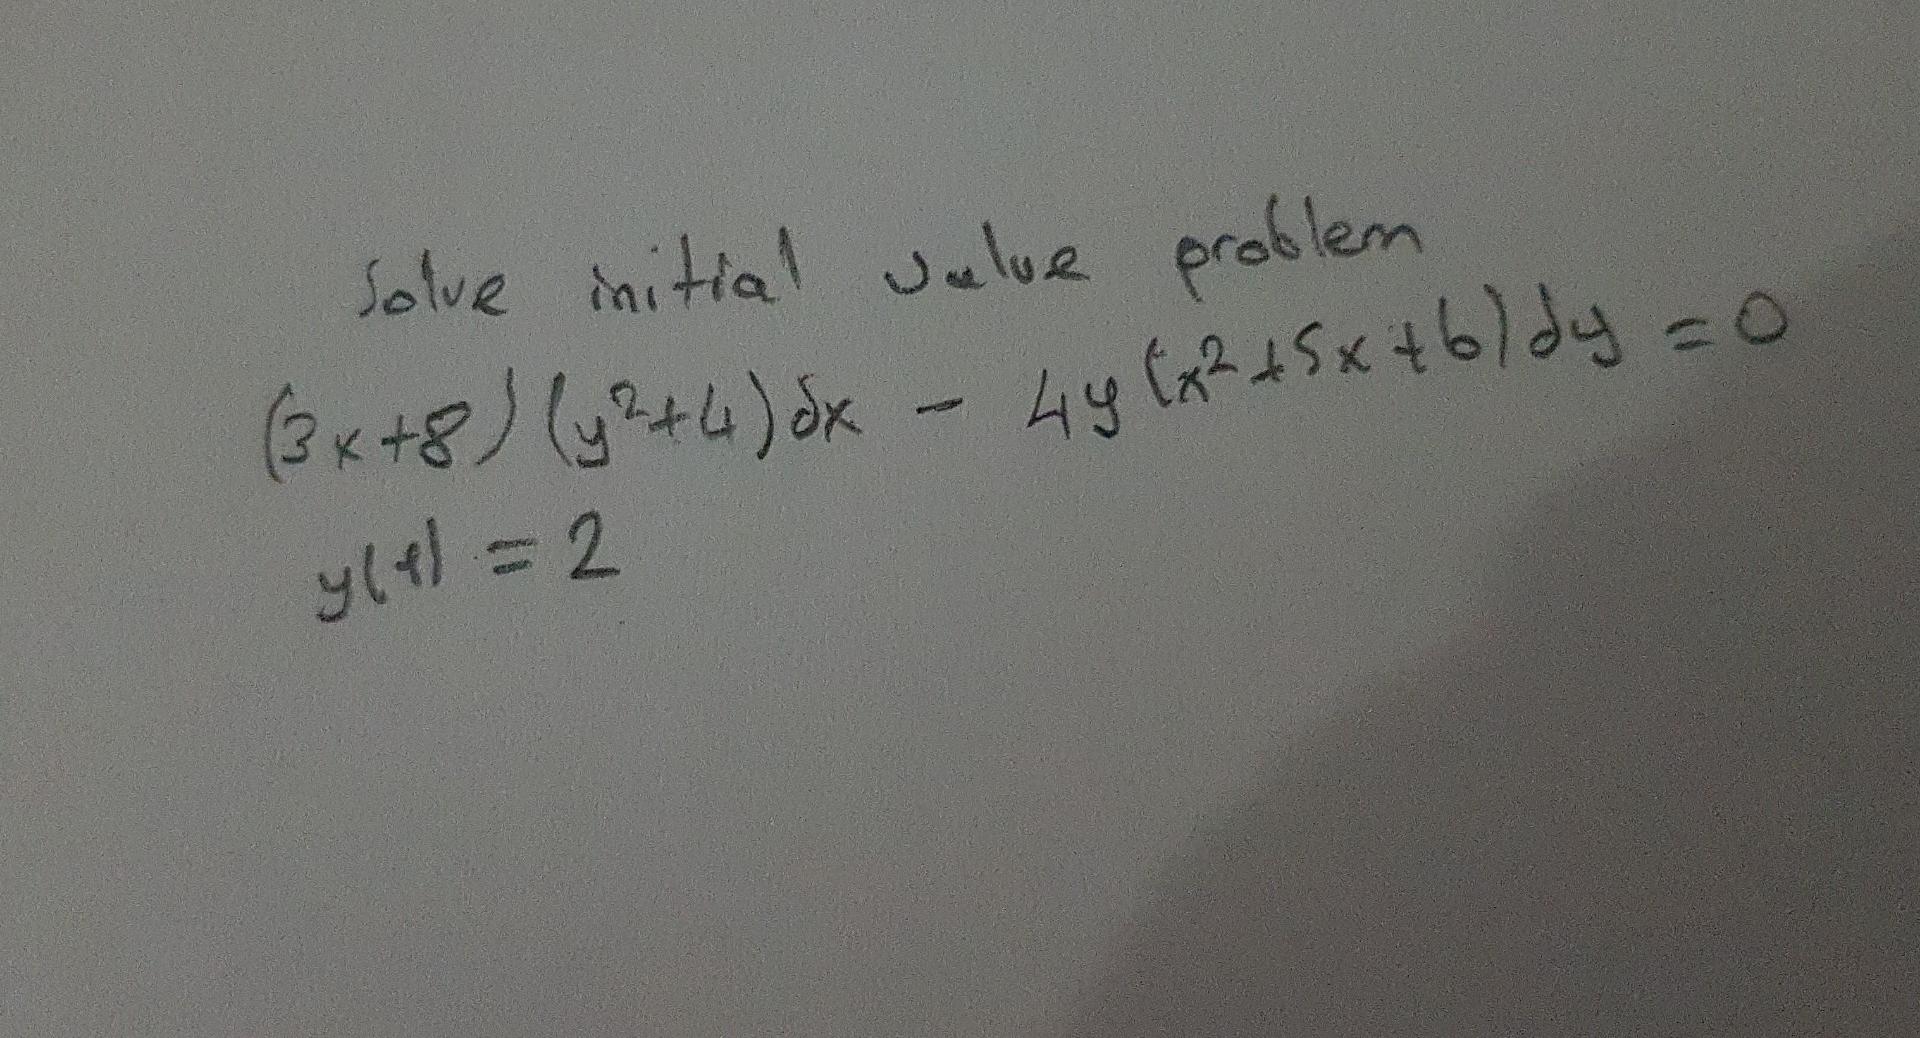 Solve initial value problem
(3x+8)(y²+4)dx - 4y(x²+5x+6)dy = 0
y(1) = 2